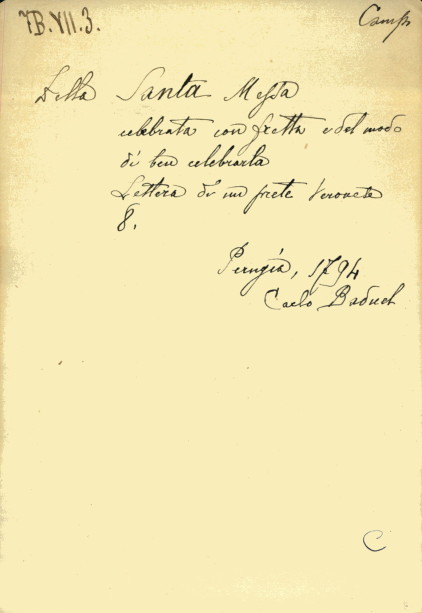 7B.VII.3.
Camp
Della Santa Messa
celebrata con fretta e del modo
di ben celebrarla
Lettera di un prete Veronese
8.
Perugia, 1794
Carlo Baduel
C